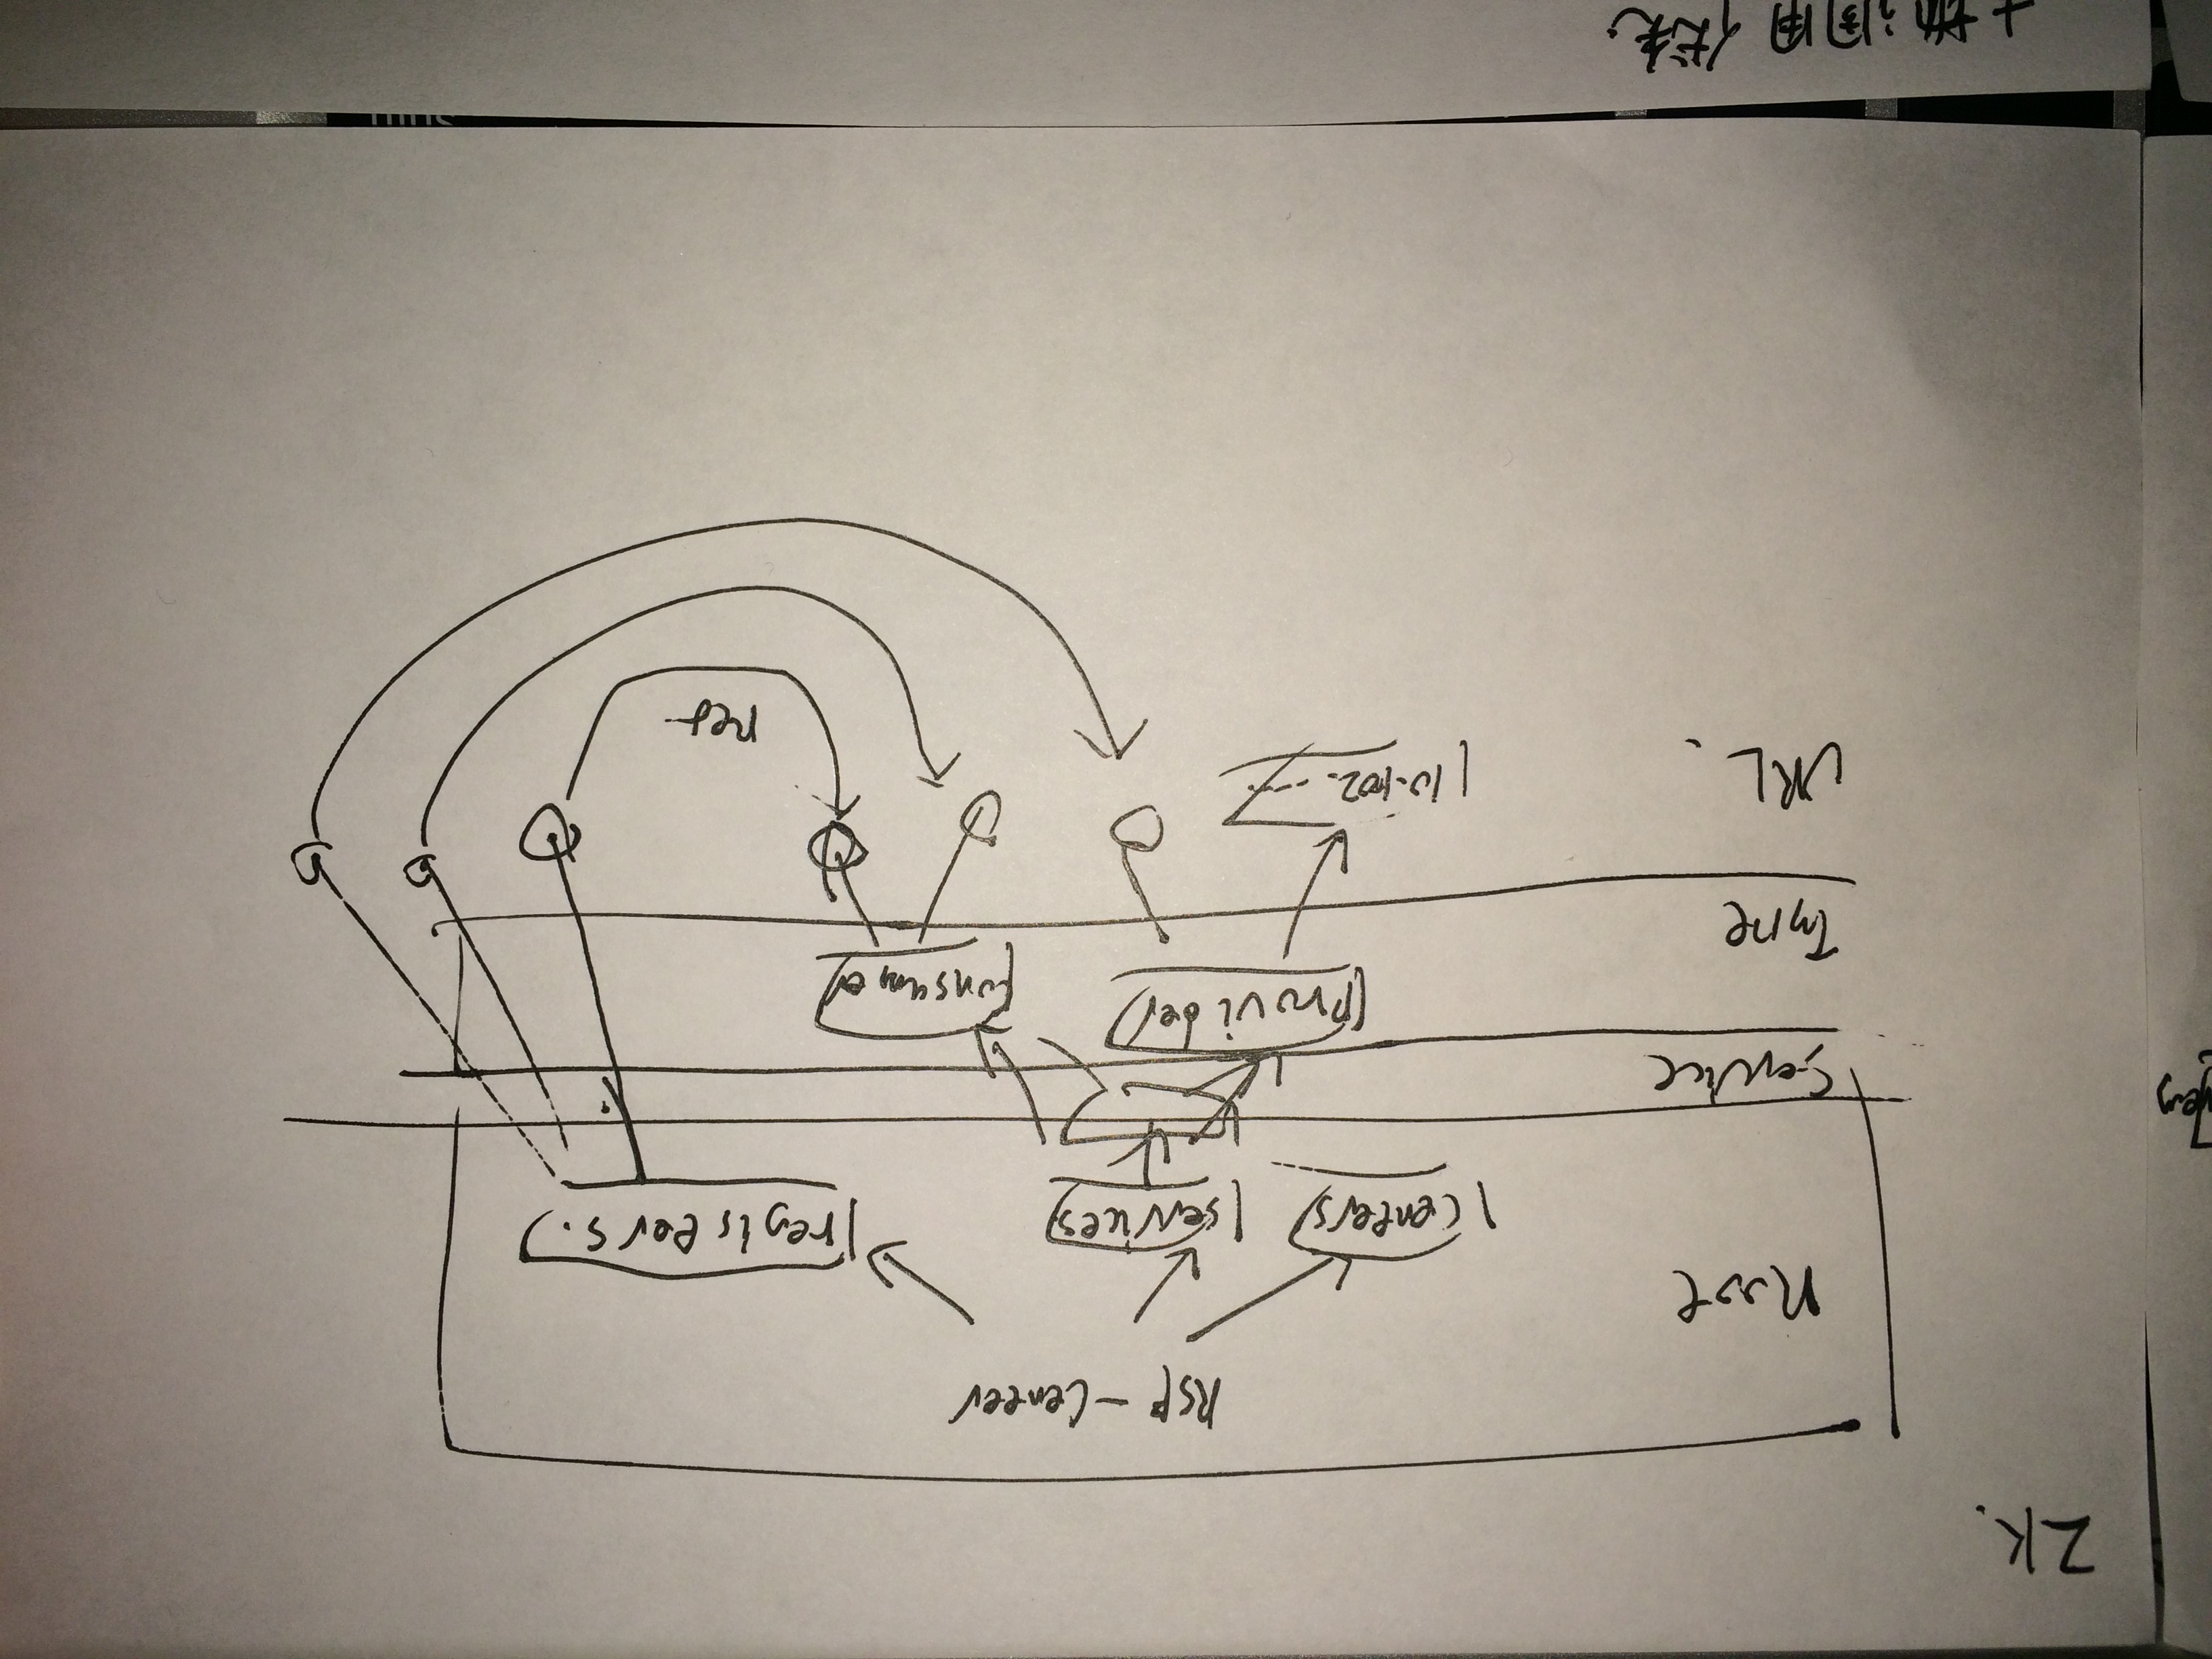 ZK.
RSP-Center
Root
/centers
/services
/registers.
Service
/provider
/consumer
Type
URL.
/10.102. ....
ref
调用优先.